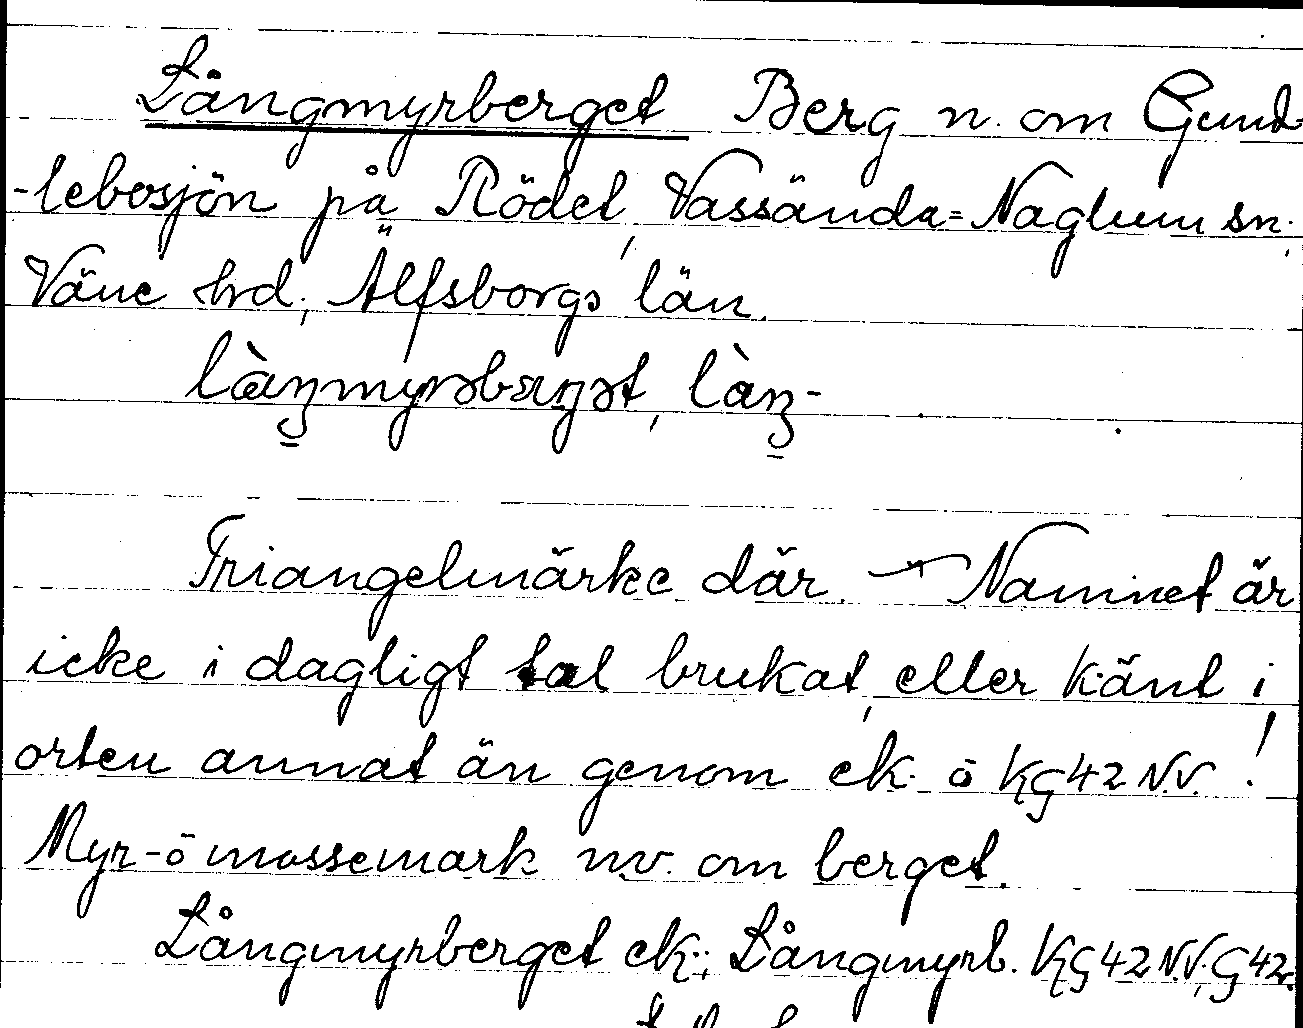 Långmyrberget Berg n. om Gund-
-lebosjön på Rödel, Vassända=Naglum sn.,
Väne hrd., Älfsborgs län.
Triangelmärke där. — Namnet är
icke i dagligt tal brukat, eller känt i
orten annat än genom ek. ō KG42 N.V.!
Myr-ō mossemark n.v. om berget.
Långmyrberget ek.; Långmyrb. KG42 N.V.; G42.